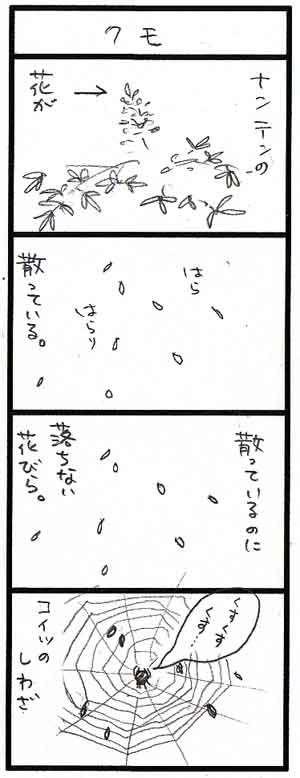 クモ
ナンテンの
花が
はら
はらり
散っている。
散っているのに
落ちない
花びら。
くすくす
くす…
コイツの
しわざ